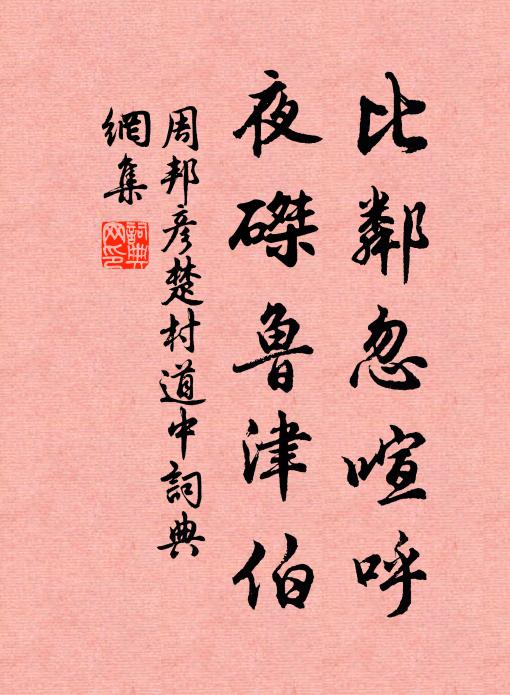 比鄰忽喧呼
夜磔魯津伯
周邦彥楚村道中詞典
網集
詞典
网印